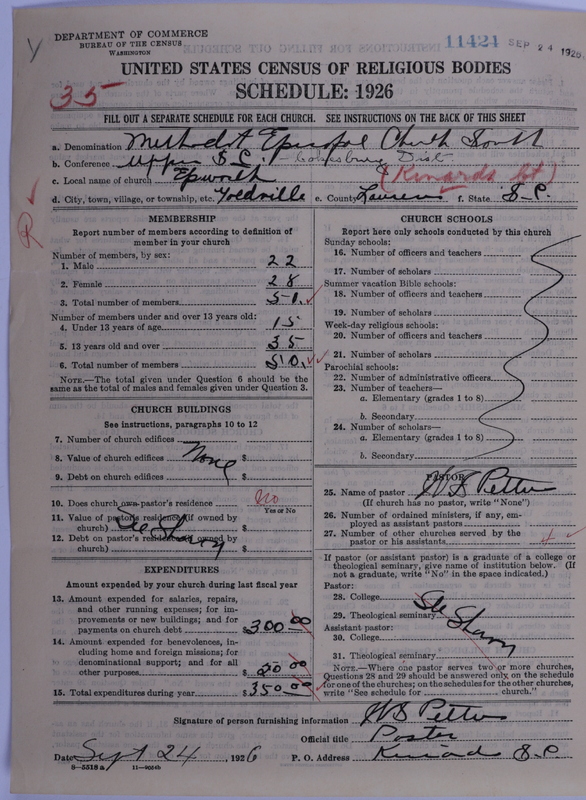 DEPARTMENT OF COMMERCE
BUREAU OF THE CENSUS
WASHINGTON
11421 SEP 24 1926
UNITED STATES CENSUS OF RELIGIOUS BODIES
SCHEDULE: 1926
35
FILL OUT A SEPARATE SCHEDULE FOR EACH CHURCH. SEE INSTRUCTIONS ON THE BACK OF THIS SHEET
a. Denomination Methodist Episcopal Church South
b. Conference Upper S.C. - Cokesbury Dist
c. Local name of church Epworth (Kinards ct)
d. City, town, village, or township, etc. e. County Laurens f. State S-C.
R
MEMBERSHIP
Report number of members according to definition of member in your church
Number of members, by sex:
1. Male 22
2. Female 28
3. Total number of members 51
Number of members under and over 13 years old:
4. Under 13 years of age 15
5. 13 years old and over 35
6. Total number of members 50
NOTE.—The total given under Question 6 should be the
same as the total of males and females given under Question 3.
CHURCH BUILDINGS
See instructions, paragraphs 10 to 12
7. Number of church edifices
8. Value of church edifices None $
9. Debt on church edifices $
10. Does church own pastor's residence No
Yes or No
11. Value of pastor's residence (if owned by
church) $
12. Debt on pastor's residence (if owned by
church) $
EXPENDITURES
Amount expended by your church during last fiscal year
13. Amount expended for salaries, repairs,
and other running expenses; for im-
provements or new buildings; and for
payments on church debt $ 300 00
14. Amount expended for benevolences, in-
cluding home and foreign missions; for
denominational support; and for all
other purposes $ 50 00
15. Total expenditures during year $ 350 00
CHURCH SCHOOLS
Report here only schools conducted by this church
Sunday schools:
16. Number of officers and teachers
17. Number of scholars
Summer vacation Bible schools:
18. Number of officers and teachers
19. Number of scholars
Week-day religious schools:
20. Number of officers and teachers
21. Number of scholars
Parochial schools:
22. Number of administrative officers
23. Number of teachers—
a. Elementary (grades 1 to 8)
b. Secondary
24. Number of scholars—
a. Elementary (grades 1 to 8)
b. Secondary
PASTOR
25. Name of pastor
(If church has no pastor, write "None")
26. Number of ordained ministers, if any, em-
ployed as assistant pastors
27. Number of other churches served by the
pastor or his assistants
If pastor (or assistant pastor) is a graduate of a college or
theological seminary, give name of institution below. (If
not a graduate, write "No" in the space indicated.)
Pastor:
28. College
29. Theological seminary
Assistant pastor:
30. College
31. Theological seminary
NOTE.—Where one pastor serves two or more churches,
Questions 28 and 29 should be answered only on the schedule
for one of the churches; on the schedules for the other churches,
write "See schedule for church."
Signature of person furnishing information
Official title Pastor
Date Sept 24, 1926 P. O. Address Kinards S.C.
8—5518 a 11—9054b